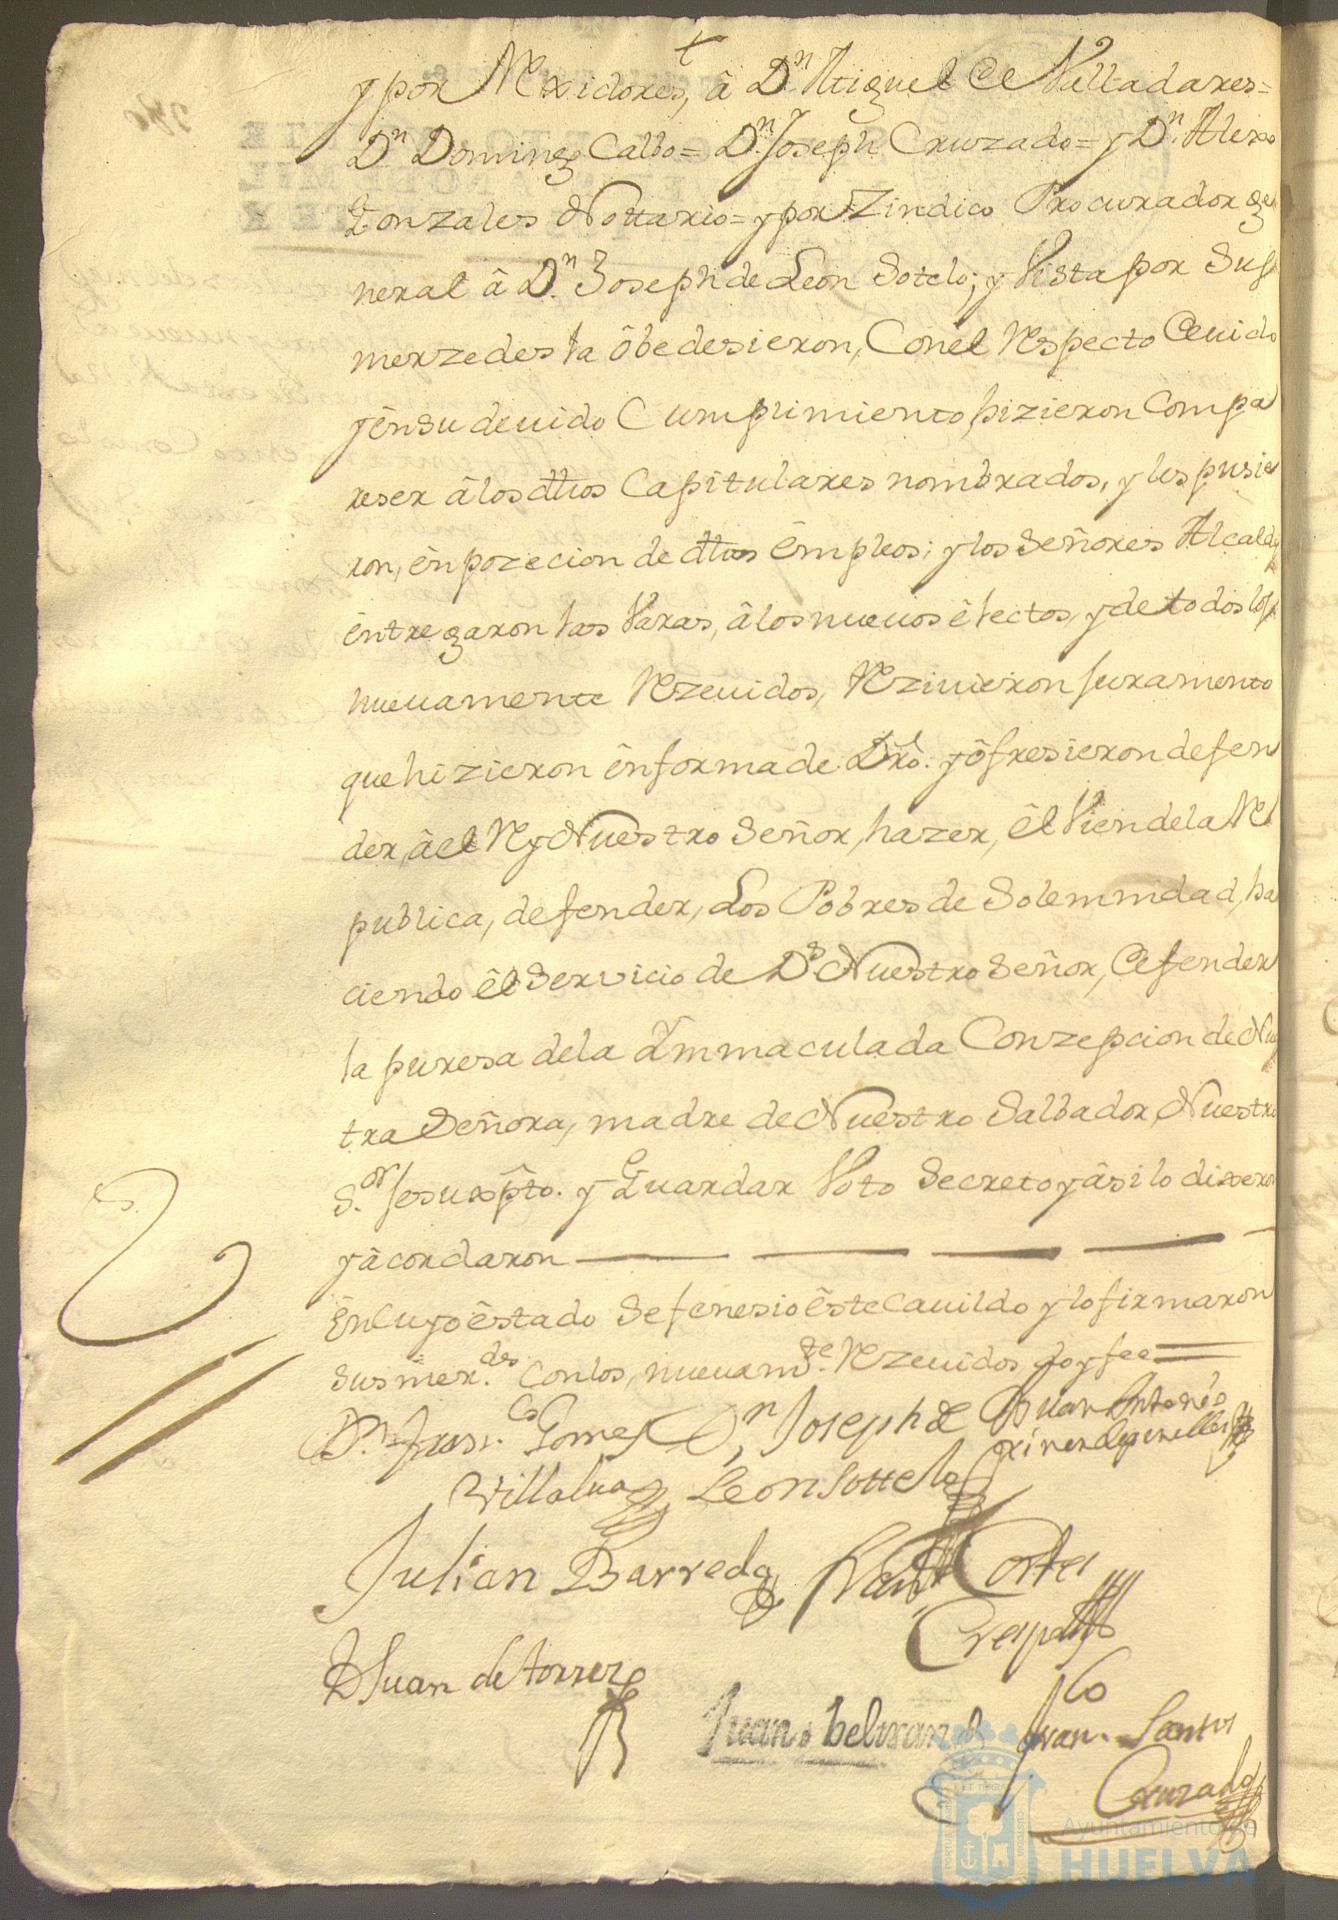 y por Rexidores, â Dn. Miguel de Valladares=
Dn Domingo Calbo= Dn. Joseph Cruzado= y Dn. Alexo
Gonzales Nottario= y por Zindico Procurador ge
neral â Dn. Joseph de Leon Sotelo; y Vista por Sus
merzedes la ôbedesieron, Con el Respecto devido
y ên su deuido Cumplimiento, hizieron Compa
reser â los dhos Capitulares nombrados, y los pusie
ron, ên pozecion de dhos êmpleos; y los Señores Alcaldes
êntregaron las Varas, â los nueuos êlectos, y de todos los
nueuamente Rezeuidos, Reziuieron Juramento
que hizieron ên forma de Dro. y ôfresieron defen
der, â el Rey Nuestro Señor, hazer, êl Vien de la Re
publica, defender, Los Pobres de Solemnidad, ha
ciendo êl Servicio de Ds. Nuestro Señor, defender
la puresa de la Ymmaculada Conzepcion de Nues
tra Señora, madre de Nuestro Salbador, Nuestro
S.or Jesuxpto. y Guardar Voto Secreto y âsi lo dixeron
y âcordaron
ên Cuyo êstado Se fenesio êste Cauildo y lo firmaron
sus mer.des Con los, nueuam.te Rezeuidos doy fee=
Dn. Fran.co Gomes Dn. Joseph de Juan Antonio
Villalua Leon Sottelo
Julian Barreda Cortes
Crespo
D Juan de torres
Juan beltran Fran.co Santos
Cruzado
Ayuntamiento de
HUELVA